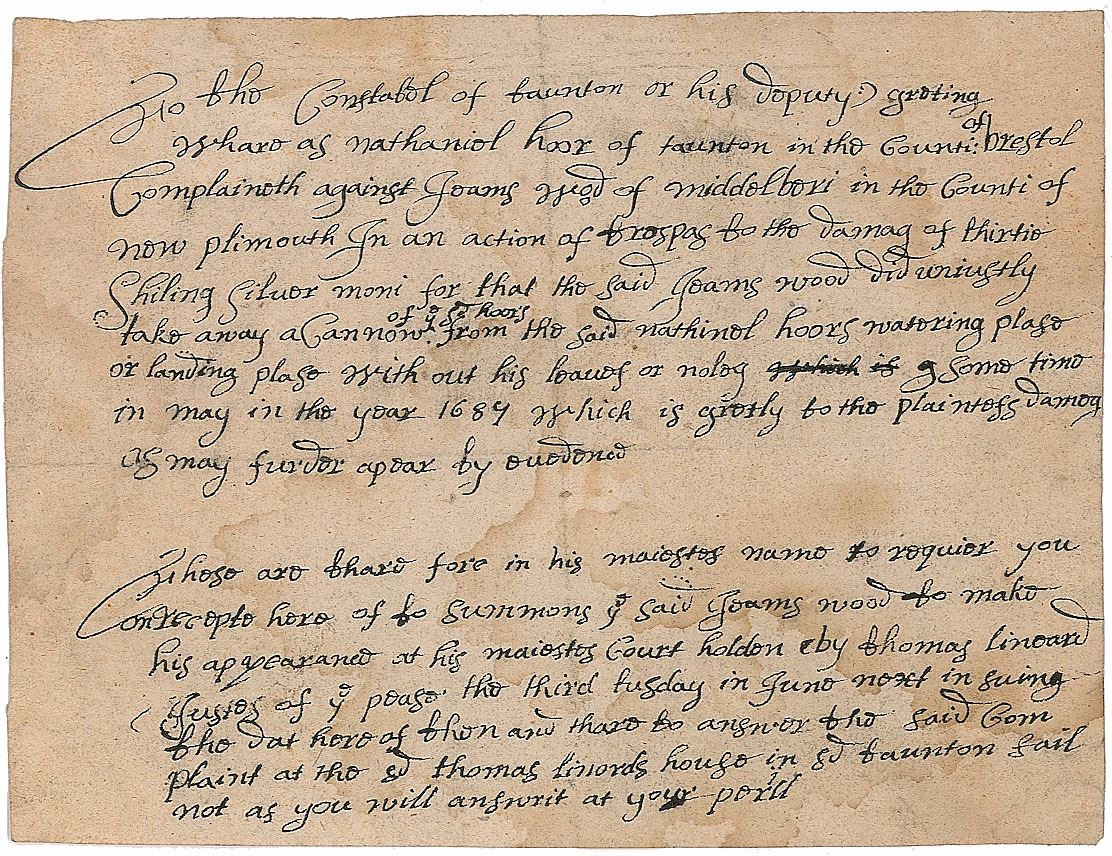 To the Constabel of taunton or his deputy:) greting
Whare as nathaniel hoor of taunton in the Counti: of brestol
Complaineth against Jeams wood of middelberi in the Counti of
new plimouth In an action of trespas to the damag of thirtie
Shiling Silver moni for that the said Jeams wood did uniustly
of ye sd hoors
take away a Cannow from the said nathinel hoors watering plase
or landing plase with out his leaves or noleg which is some time
in may in the year 1687 which is gretly to the plainteffs dameg
as may furder apear by evedenc
These are thare fore in his maiestes name to requier you
on recepte here of to summons ye said Jeams wood to make
his appearanc at his maiestes Court holden by thomas lineard
Justes of ye pease the third tusday in June next in suing
the dat here of then and thare to answer the said Com
plaint at the sd thomas linords house in sd taunton fail
not as you will answr it at your peril